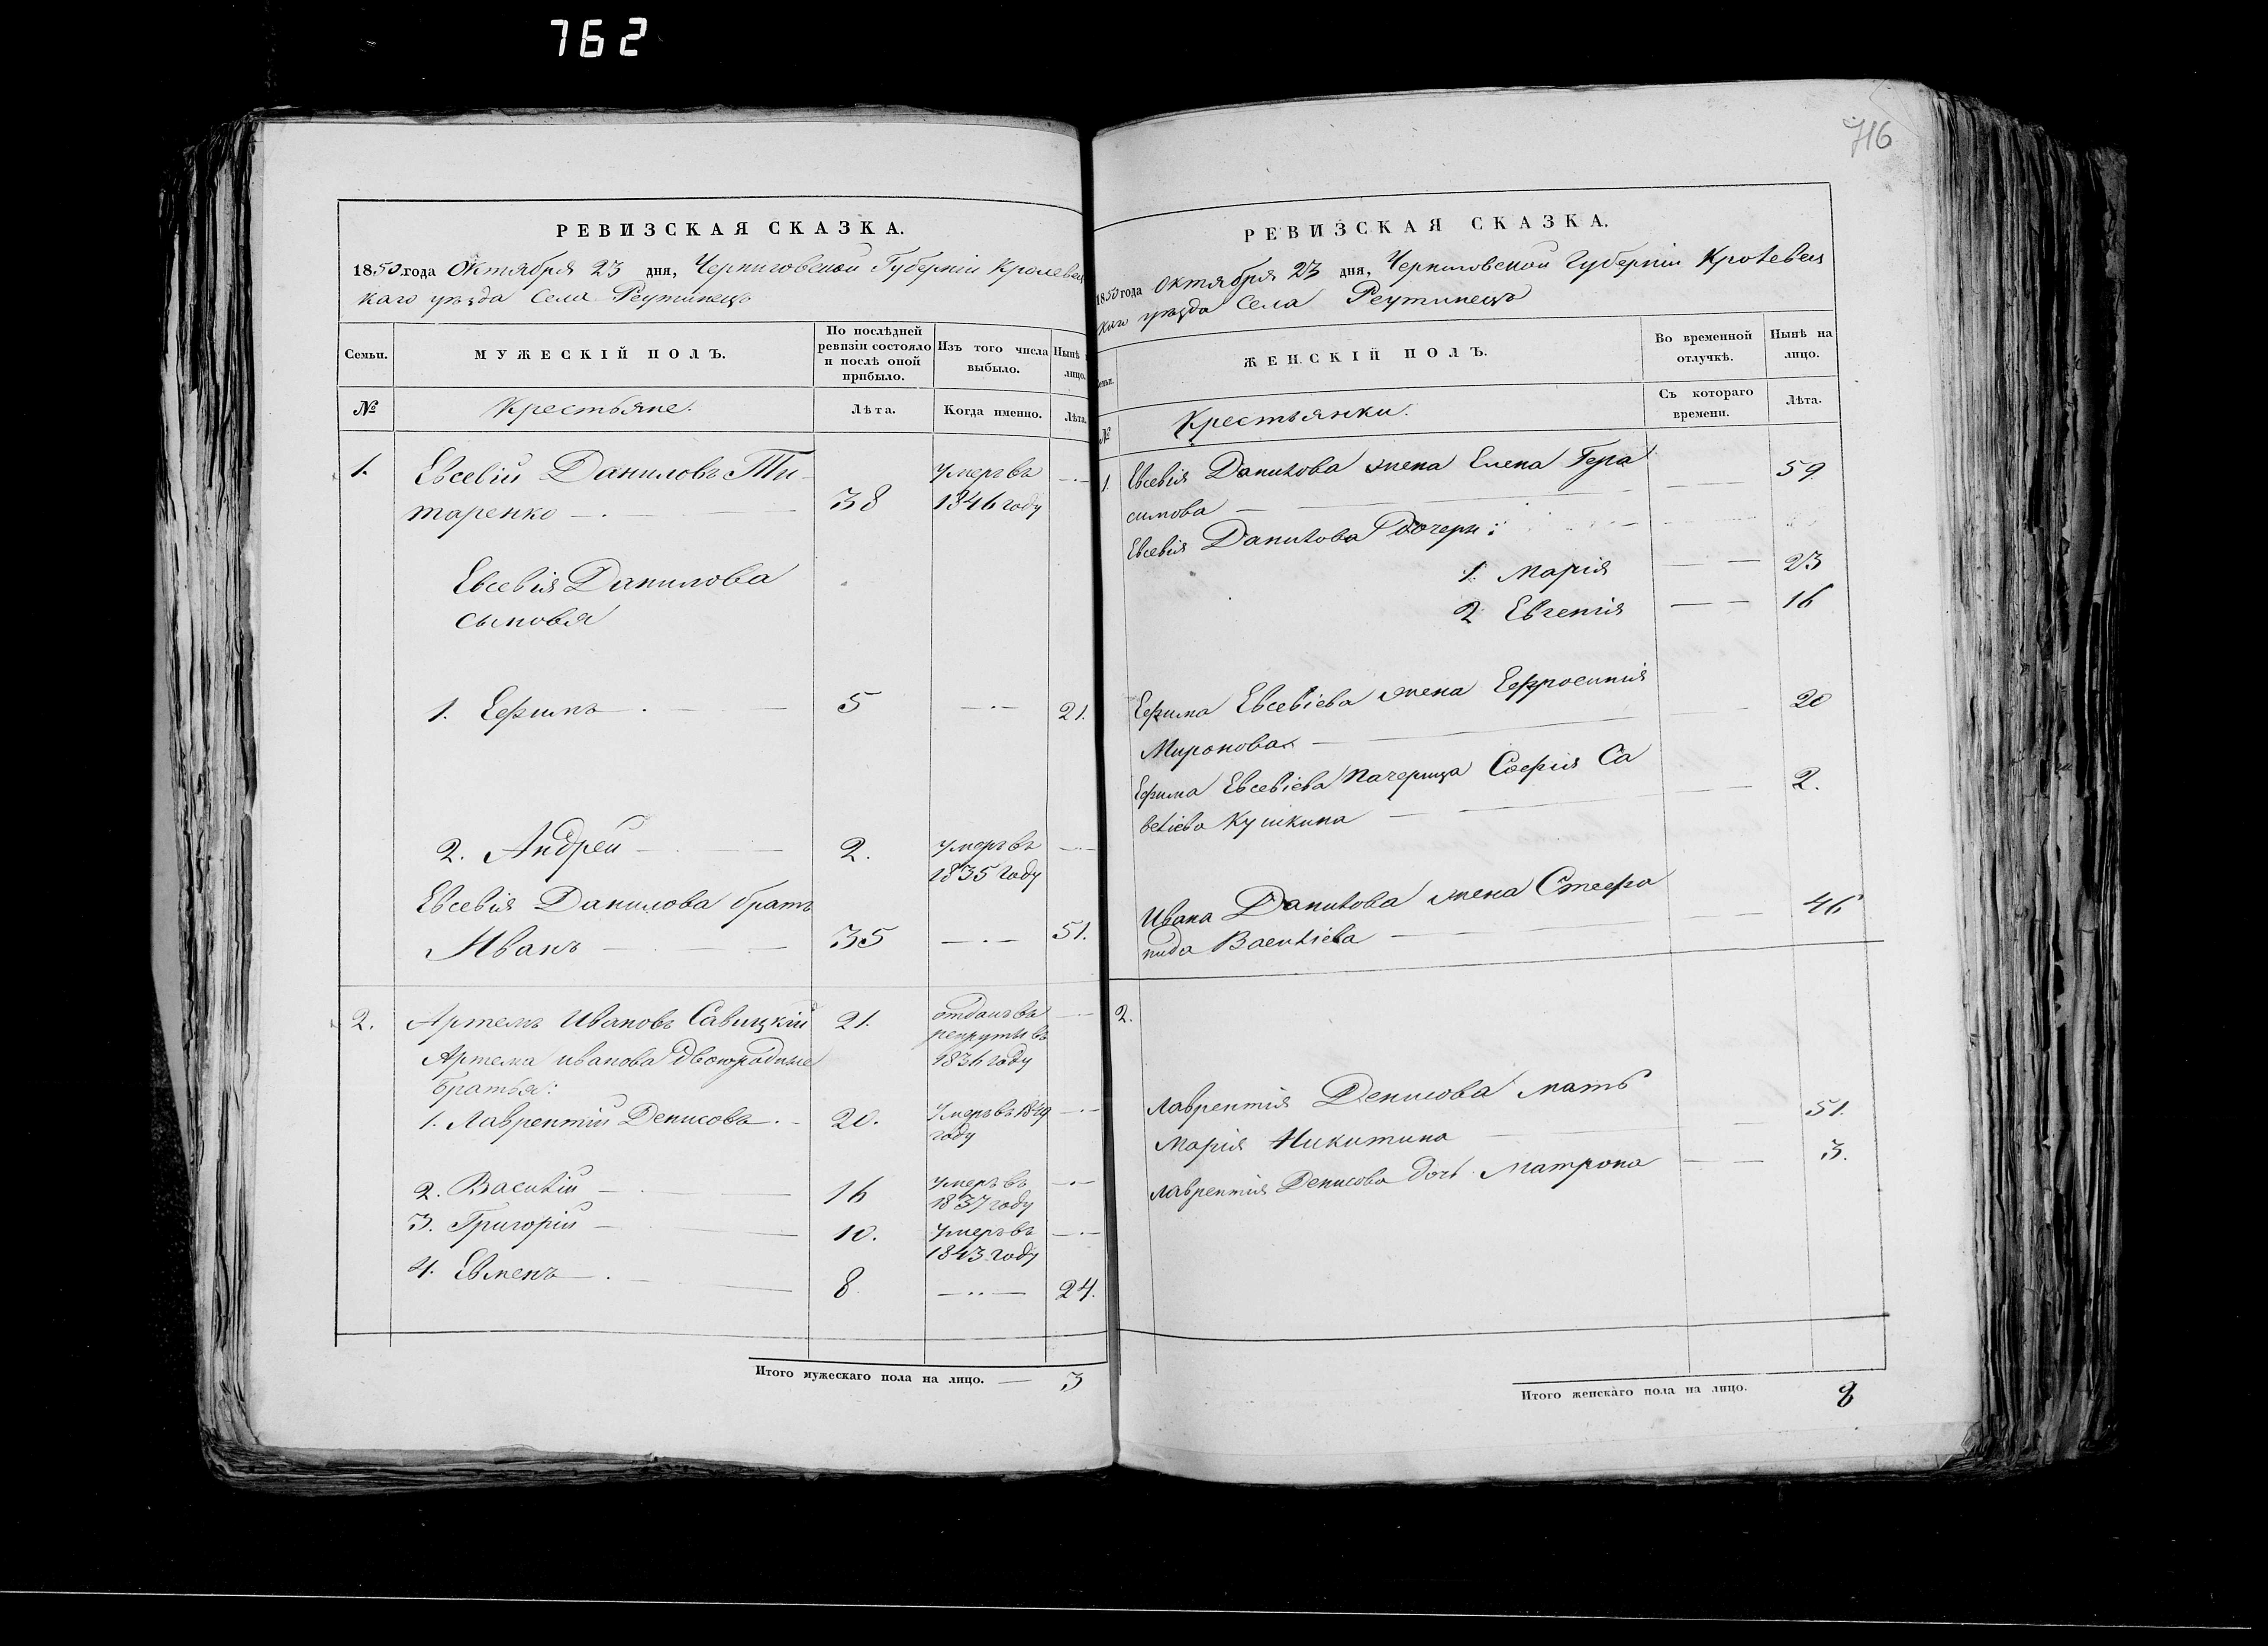 762
716
РЕВИЗСКАЯ СКАЗКА.
1850 года Октября 23 дня, Черниговской Губерніи Кролевец
каго уѣзда Села Реутинецъ
Семьи. МУЖЕСКІЙ ПОЛЪ. По послѣдней ревизіи состояло и послѣ оной прибыло. Изъ того числа выбыло. Нынѣ лицо.
№ Крестьяне. Лѣта. Когда именно. Лѣта.
1. Евсевій Даниловъ Ти-
таренко 38 Умеръ въ 1846 году
Евсевія Данилова
сыновя
1. Ефимъ 5 21.
2. Андрей 2. умеръ въ
1835 году
Евсевія Данилова братъ
Иванъ 35 51.
2. Артемъ Ивановъ Савицкій 21. отданъ въ
рекруты въ
1836 году
Артема иванова двоюродные
братья:
1. Лаврентій Денисовъ 20. Умеръ въ 1849
году
2. Василій 16 умеръ въ
1837 году
3. Григорій 10. умеръ въ
1843 году
4. Евменъ 8 24.
Итого мужескаго пола на лицо. 3
РЕВИЗСКАЯ СКАЗКА.
1850 года октября 23 дня, Черниговской Губерніи Кролевец
каго уѣзда Села Реутинецъ
ЖЕНСКІЙ ПОЛЪ. Во временной отлучкѣ. Нынѣ на лицо.
№ Крестьянки. Съ котораго времени. Лѣта.
1. Евсевія Данилова жена Елена Гера
симова 59
Евсевія Данилова дочери:
1. Марія 23
2 Евгенія 16
Ефима Евсевіева жена Ефросинія
Миронова 20
Ефима Евсевіева пачерица Софія Са
велiева Кушкина 2.
Ивана Данилова жена Стефа
нида Василіева 46
2.
Лаврентія Денисова мать
Марія Никитина 51.
Лаврентія Денисова дочь Матрона 3.
Итого женскаго пола на лицо. 8